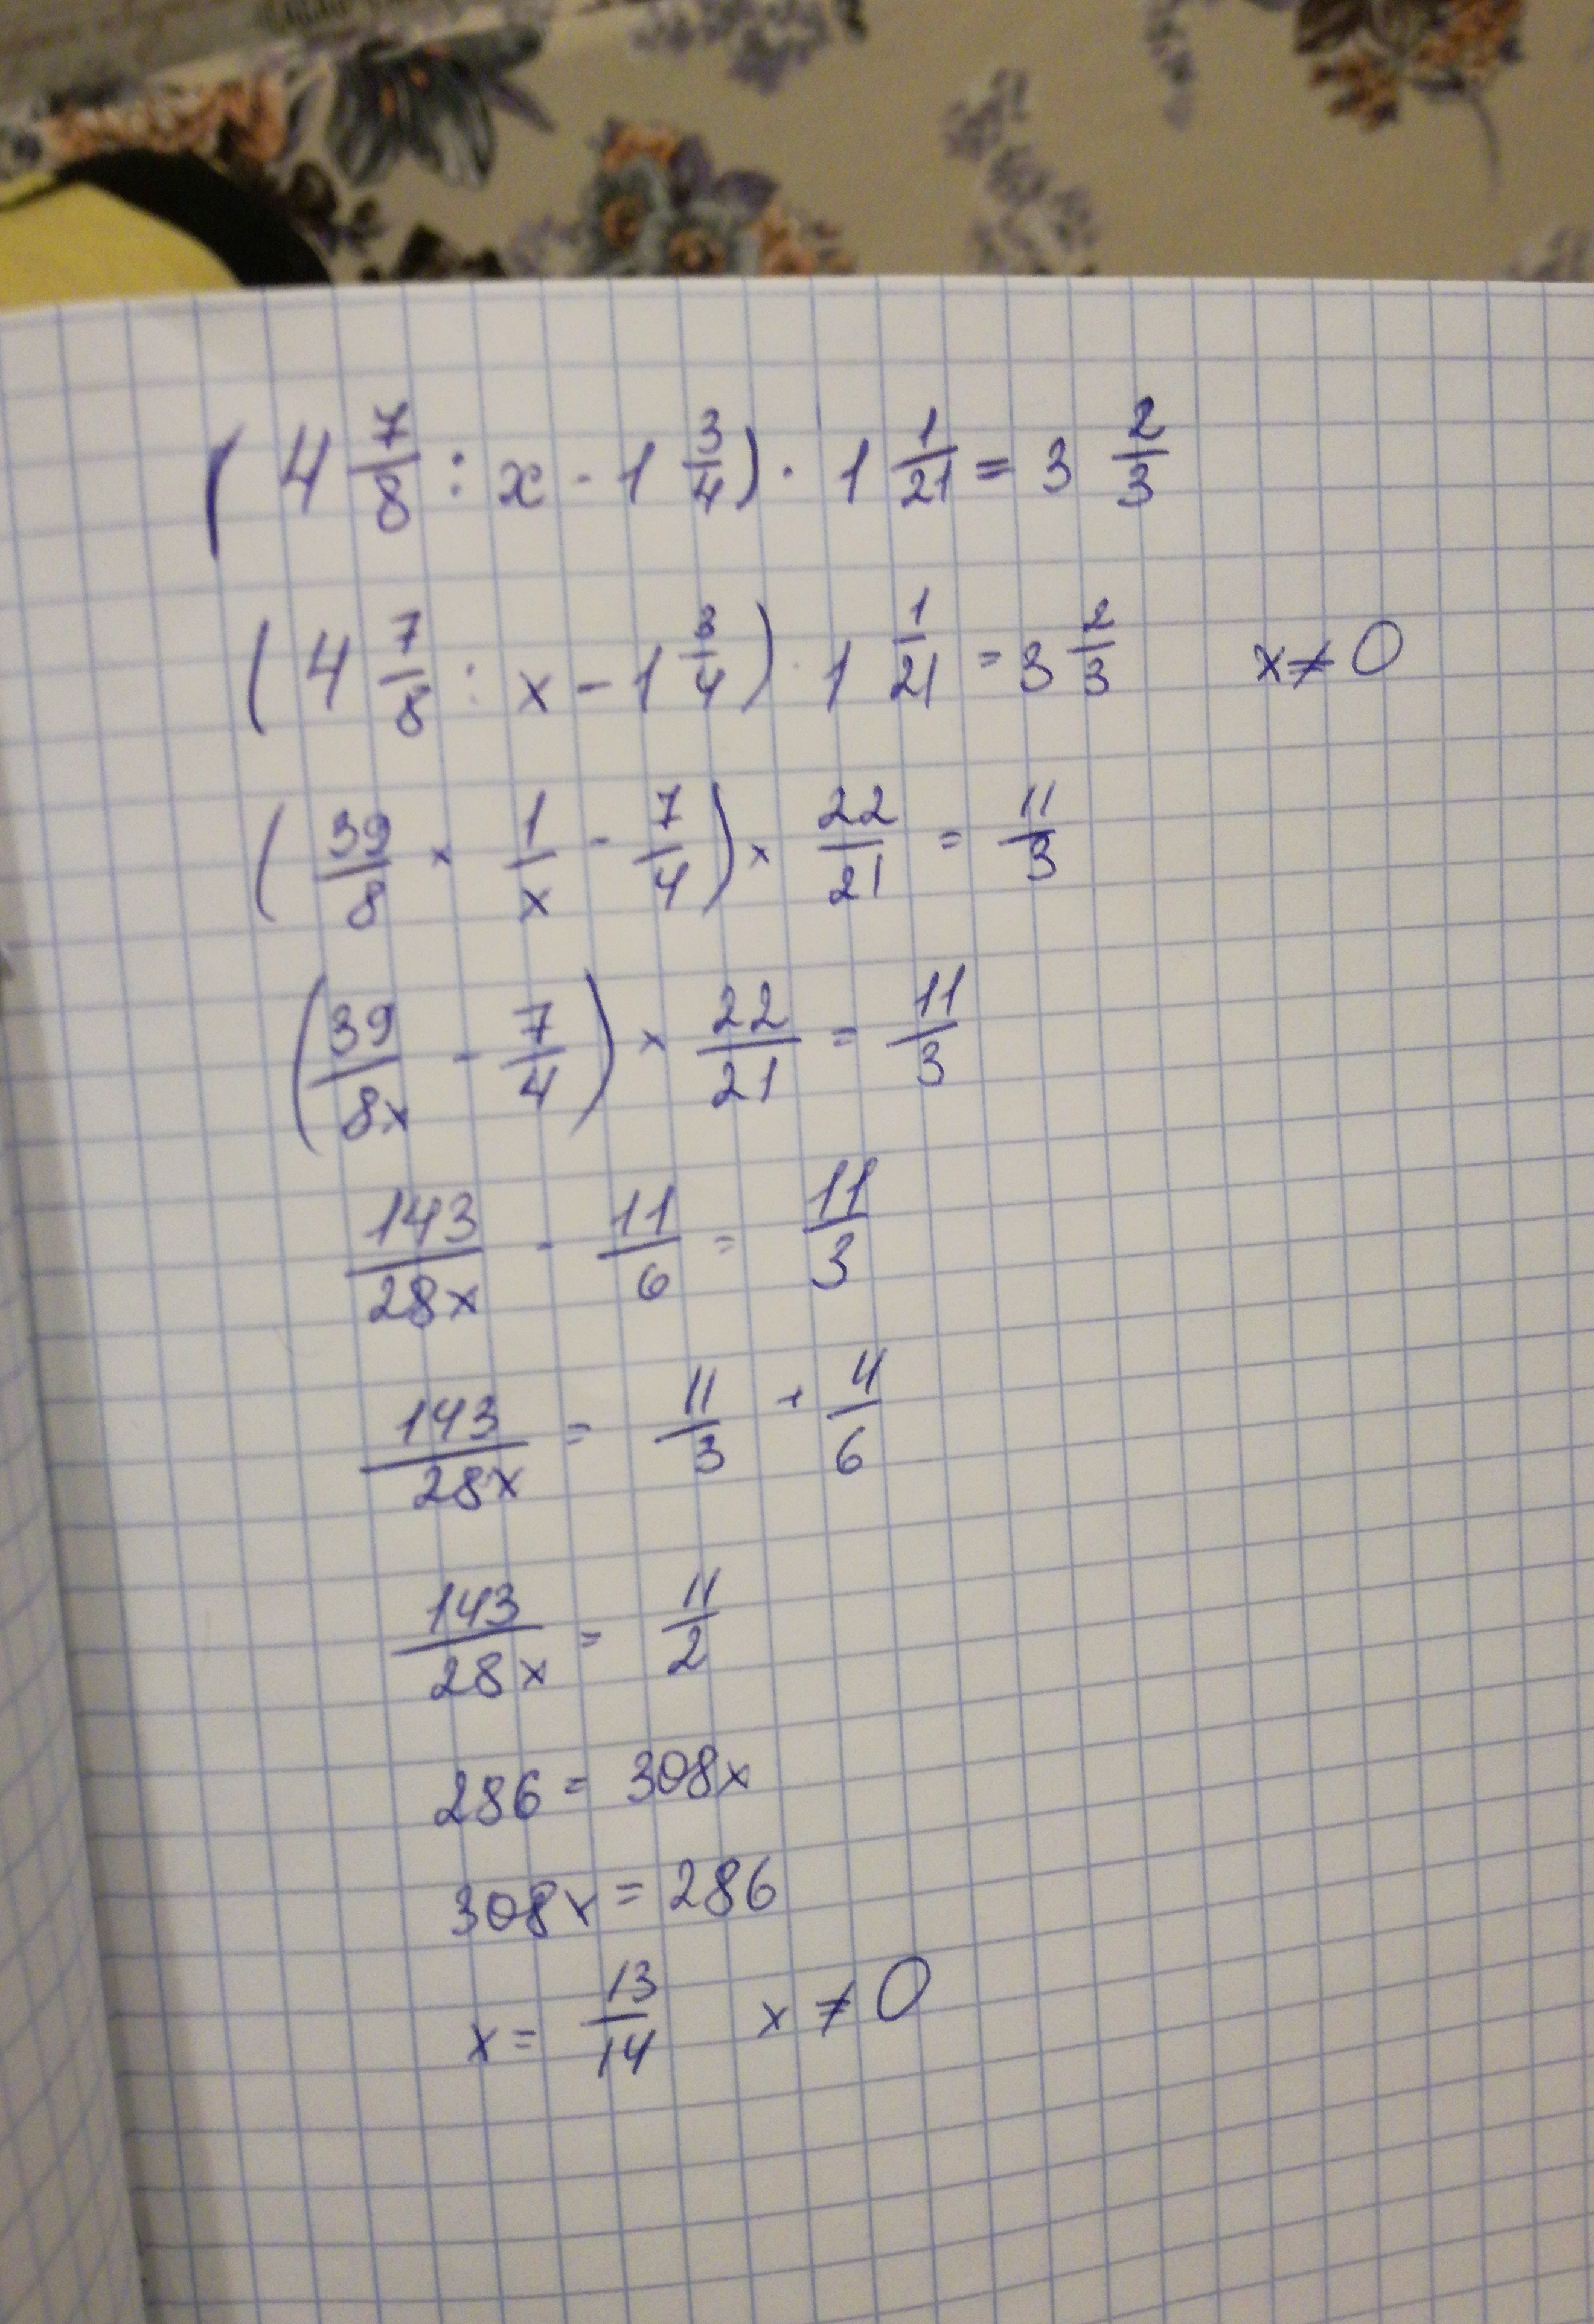 ( 4 7/8 : x - 1 3/4 ) · 1 1/21 = 3 2/3
( 4 7/8 : x - 1 3/4 ) · 1 1/21 = 3 2/3 x ≠ 0
( 39/8 × 1/x - 7/4 ) × 22/21 = 11/3
( 39/8x - 7/4 ) × 22/21 = 11/3
143/28x - 11/6 = 11/3
143/28x = 11/3 + 11/6
143/28x = 11/2
286 = 308x
308x = 286
x = 13/14 x ≠ 0